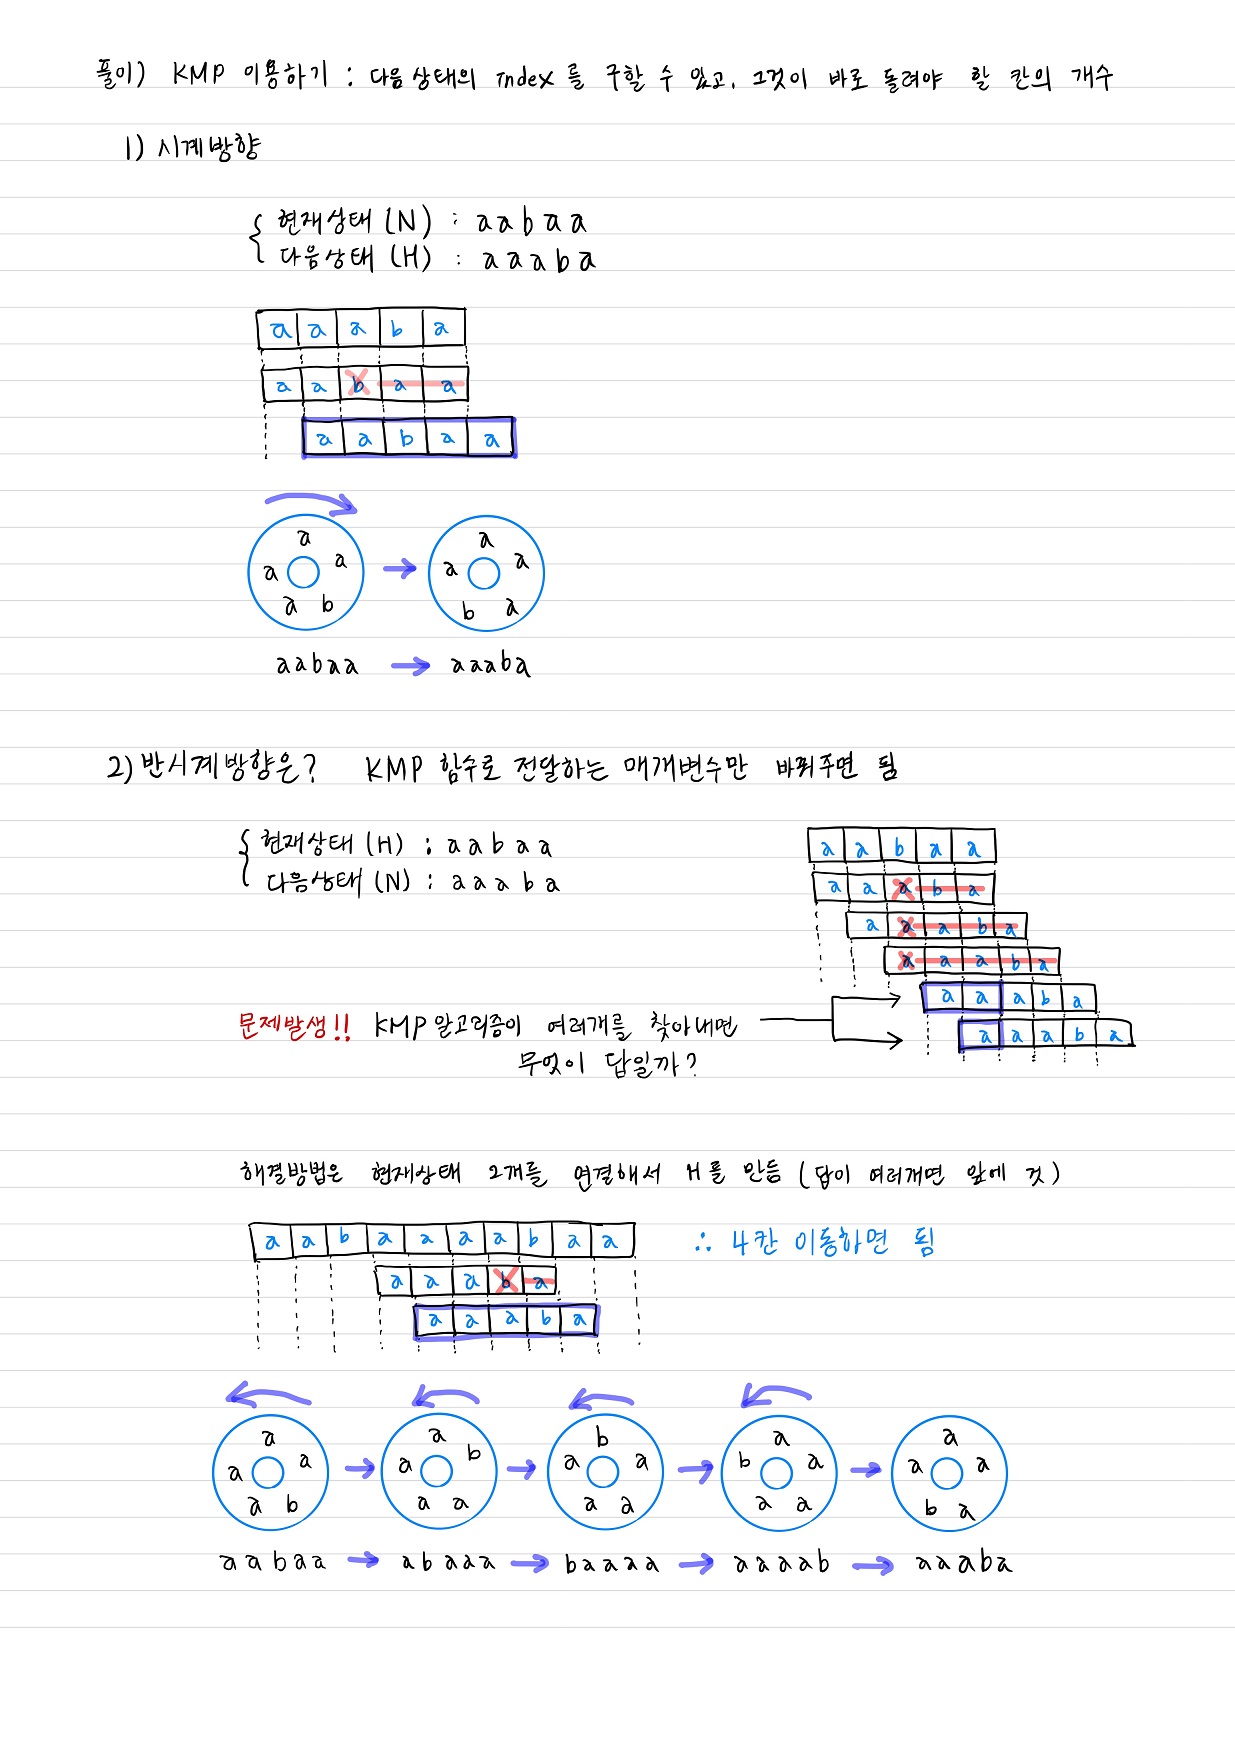 풀이) KMP 이용하기 : 다음상태의 index를 구할 수 있고, 그것이 바로 돌려야 할 칸의 개수
1) 시계방향
{ 현재상태 (N) : a a b a a
다음상태 (H) : a a a b a
a a a b a
a a b a a
a a b a a
a a b a a
a a a b a
aabaa → aaaba
2) 반시계방향은? KMP 함수로 전달하는 매개변수만 바꿔주면 됨
{ 현재상태 (H) : a a b a a
다음상태 (N) : a a a b a
a a b a a
a a a b a
a a a b a
a a a b a
a a a b a
a a a b a
문제발생!! KMP 알고리즘이 여러개를 찾아내면
무엇이 답일까?
해결방법은 현재상태 2개를 연결해서 H를 만듬 (답이 여러개면 앞에 것)
a a b a a a a b a a
∴ 4칸 이동하면 됨
a a a b a
a a a b a
a a b a a
a b a a a
b a a a a
a a a a b
a a a b a
aabaa → abaaa → baaaa → aaaab → aaaba